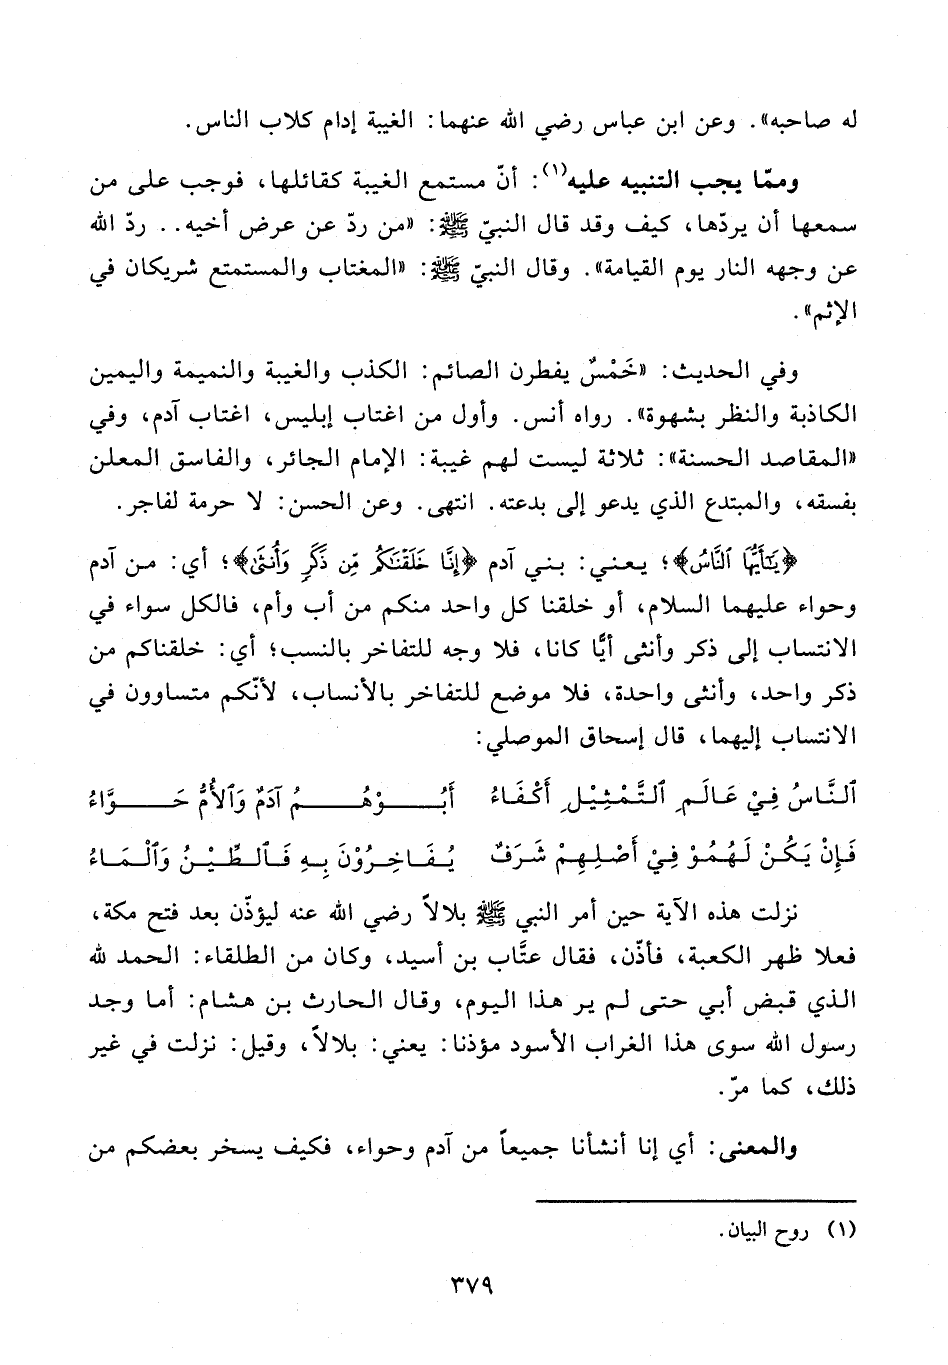 له صاحبه». وعن ابن عباس رضي الله عنهما: الغيبة إدام كلاب الناس.
وممّا يجب التنبيه عليه(١): أنّ مستمع الغيبة كقائلها، فوجب على من
سمعها أن يردّها، كيف وقد قال النبيّ ﷺ: «من ردّ عن عرض أخيه.. ردّ الله
عن وجهه النار يوم القيامة». وقال النبيّ ﷺ: «المغتاب والمستمتع شريكان في
الإثم».
وفي الحديث: «خَمْسٌ يفطرن الصائم: الكذب والغيبة والنميمة واليمين
الكاذبة والنظر بشهوة». رواه أنس. وأول من اغتاب إبليس، اغتاب آدم، وفي
«المقاصد الحسنة»: ثلاثة ليست لهم غيبة: الإمام الجائر، والفاسق المعلن
بفسقه، والمبتدع الذي يدعو إلى بدعته. انتهى. وعن الحسن: لا حرمة لفاجر.
﴿يَٰٓأَيُّهَا ٱلنَّاسُ﴾؛ يعني: بني آدم ﴿إِنَّا خَلَقْنَٰكُم مِّن ذَكَرٍ وَأُنثَىٰ﴾؛ أي: من آدم
وحواء عليهما السلام، أو خلقنا كل واحد منكم من أب وأم، فالكل سواء في
الانتساب إلى ذكر وأنثى أيًّا كانا، فلا وجه للتفاخر بالنسب؛ أي: خلقناكم من
ذكر واحد، وأنثى واحدة، فلا موضع للتفاخر بالأنساب، لأنّكم متساوون في
الانتساب إليهما، قال إسحاق الموصلي:
ٱلنَّاسُ فِيْ عَالَمِ ٱلتَّمْثِيْلِ أَكْفَاءُ أَبُوْهُمُ آدَمٌ وَٱلأُمُّ حَوَّاءُ
فَإِنْ يَكُنْ لَهُمُوْ فِيْ أَصْلِهِمْ شَرَفٌ يُفَاخِرُوْنَ بِهِ فَٱلطِّيْنُ وَٱلْمَاءُ
نزلت هذه الآية حين أمر النبي ﷺ بلالاً رضي الله عنه ليؤذّن بعد فتح مكة،
فعلا ظهر الكعبة، فأذّن، فقال عتَّاب بن أسيد، وكان من الطلقاء: الحمد لله
الذي قبض أبي حتى لم ير هذا اليوم، وقال الحارث بن هشام: أما وجد
رسول الله سوى هذا الغراب الأسود مؤذنا: يعني: بلالاً، وقيل: نزلت في غير
ذلك، كما مرّ.
والمعنى: أي إنا أنشأنا جميعاً من آدم وحواء، فكيف يسخر بعضكم من
(١) روح البيان.
٣٧٩